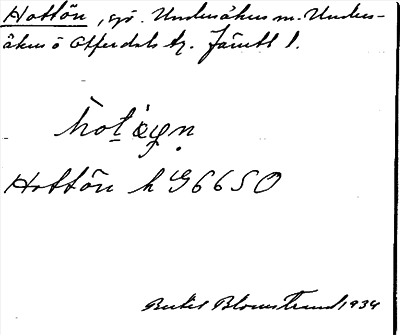 Hottön, sjö. Undersåkers m. Unders-
åkers o Offerdals tg. Jämtl l.
Hottön h G6650
Bertil Blomstrand 1934